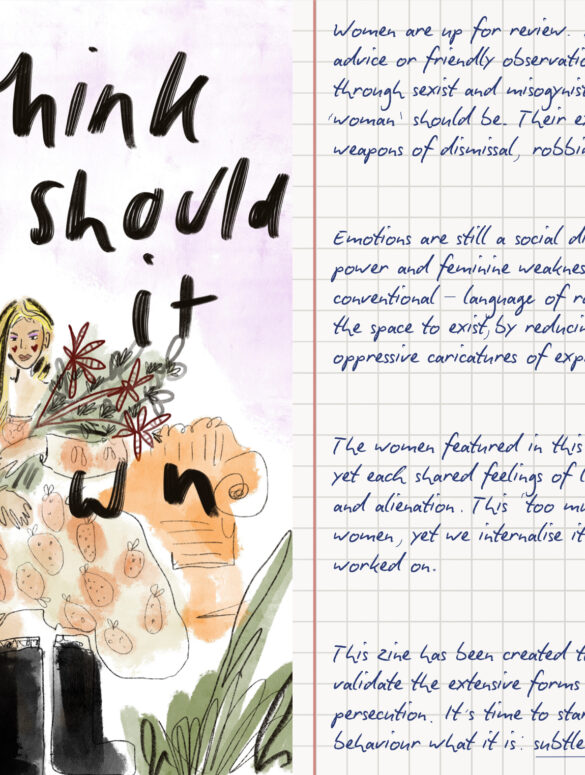 hink
should
it
wn
Women are up for review.
advice or friendly observatio
through sexist and misogynist
'woman' should be. Their ex
weapons of dismissal, robbin
Emotions are still a social di
power and feminine weakness
conventional – language of re
the space to exist, by reducin
oppressive caricatures of exp
The women featured in this
yet each shared feelings of l
and alienation. This 'too mu
women, yet we internalise it
worked on.
This zine has been created t
validate the extensive forms
persecution. It's time to star
behaviour what it is: subtle